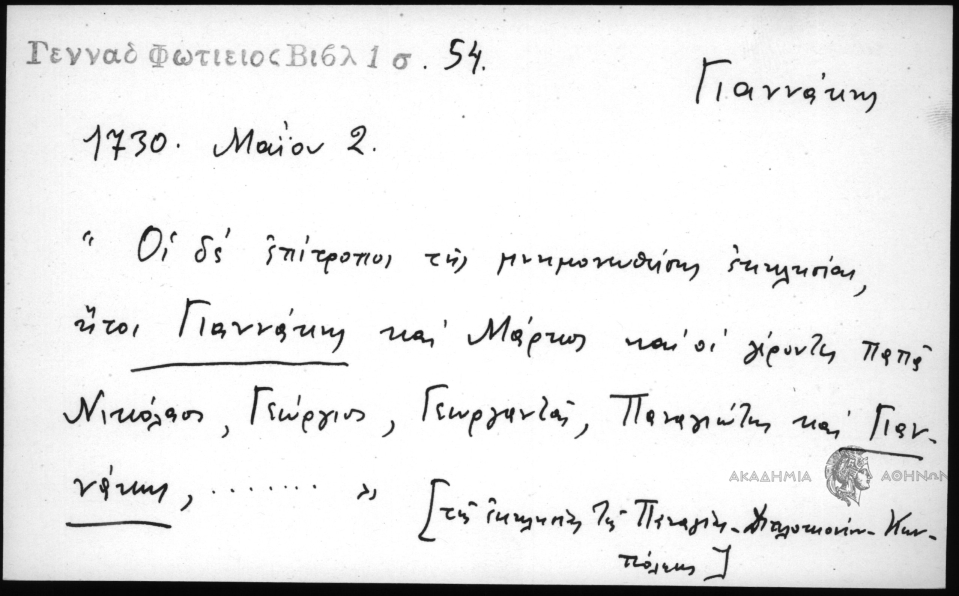 Γενναδ Φωτιειος Βιβλ 1 σ. 54.
Γιαννάκης
1730. Μαΐου 2.
" Οἱ δέ ἐπίτροποι τῆς μνημονευθείσης ἐκκλησίας,
ἤτοι Γιαννάκης καί Μάρκος καί οἱ γέροντες παπᾶ
Νικόλαος, Γεώργιος, Γεωργαντᾶς, Παναγιώτης καί Γιαν-
νάκης, ....... »
ΑΚΑΔΗΜΙΑ ΑΘΗΝΩΝ
[τῆς ἐκκλησίας τῆς Παναγίας Κων-
πόλεως]